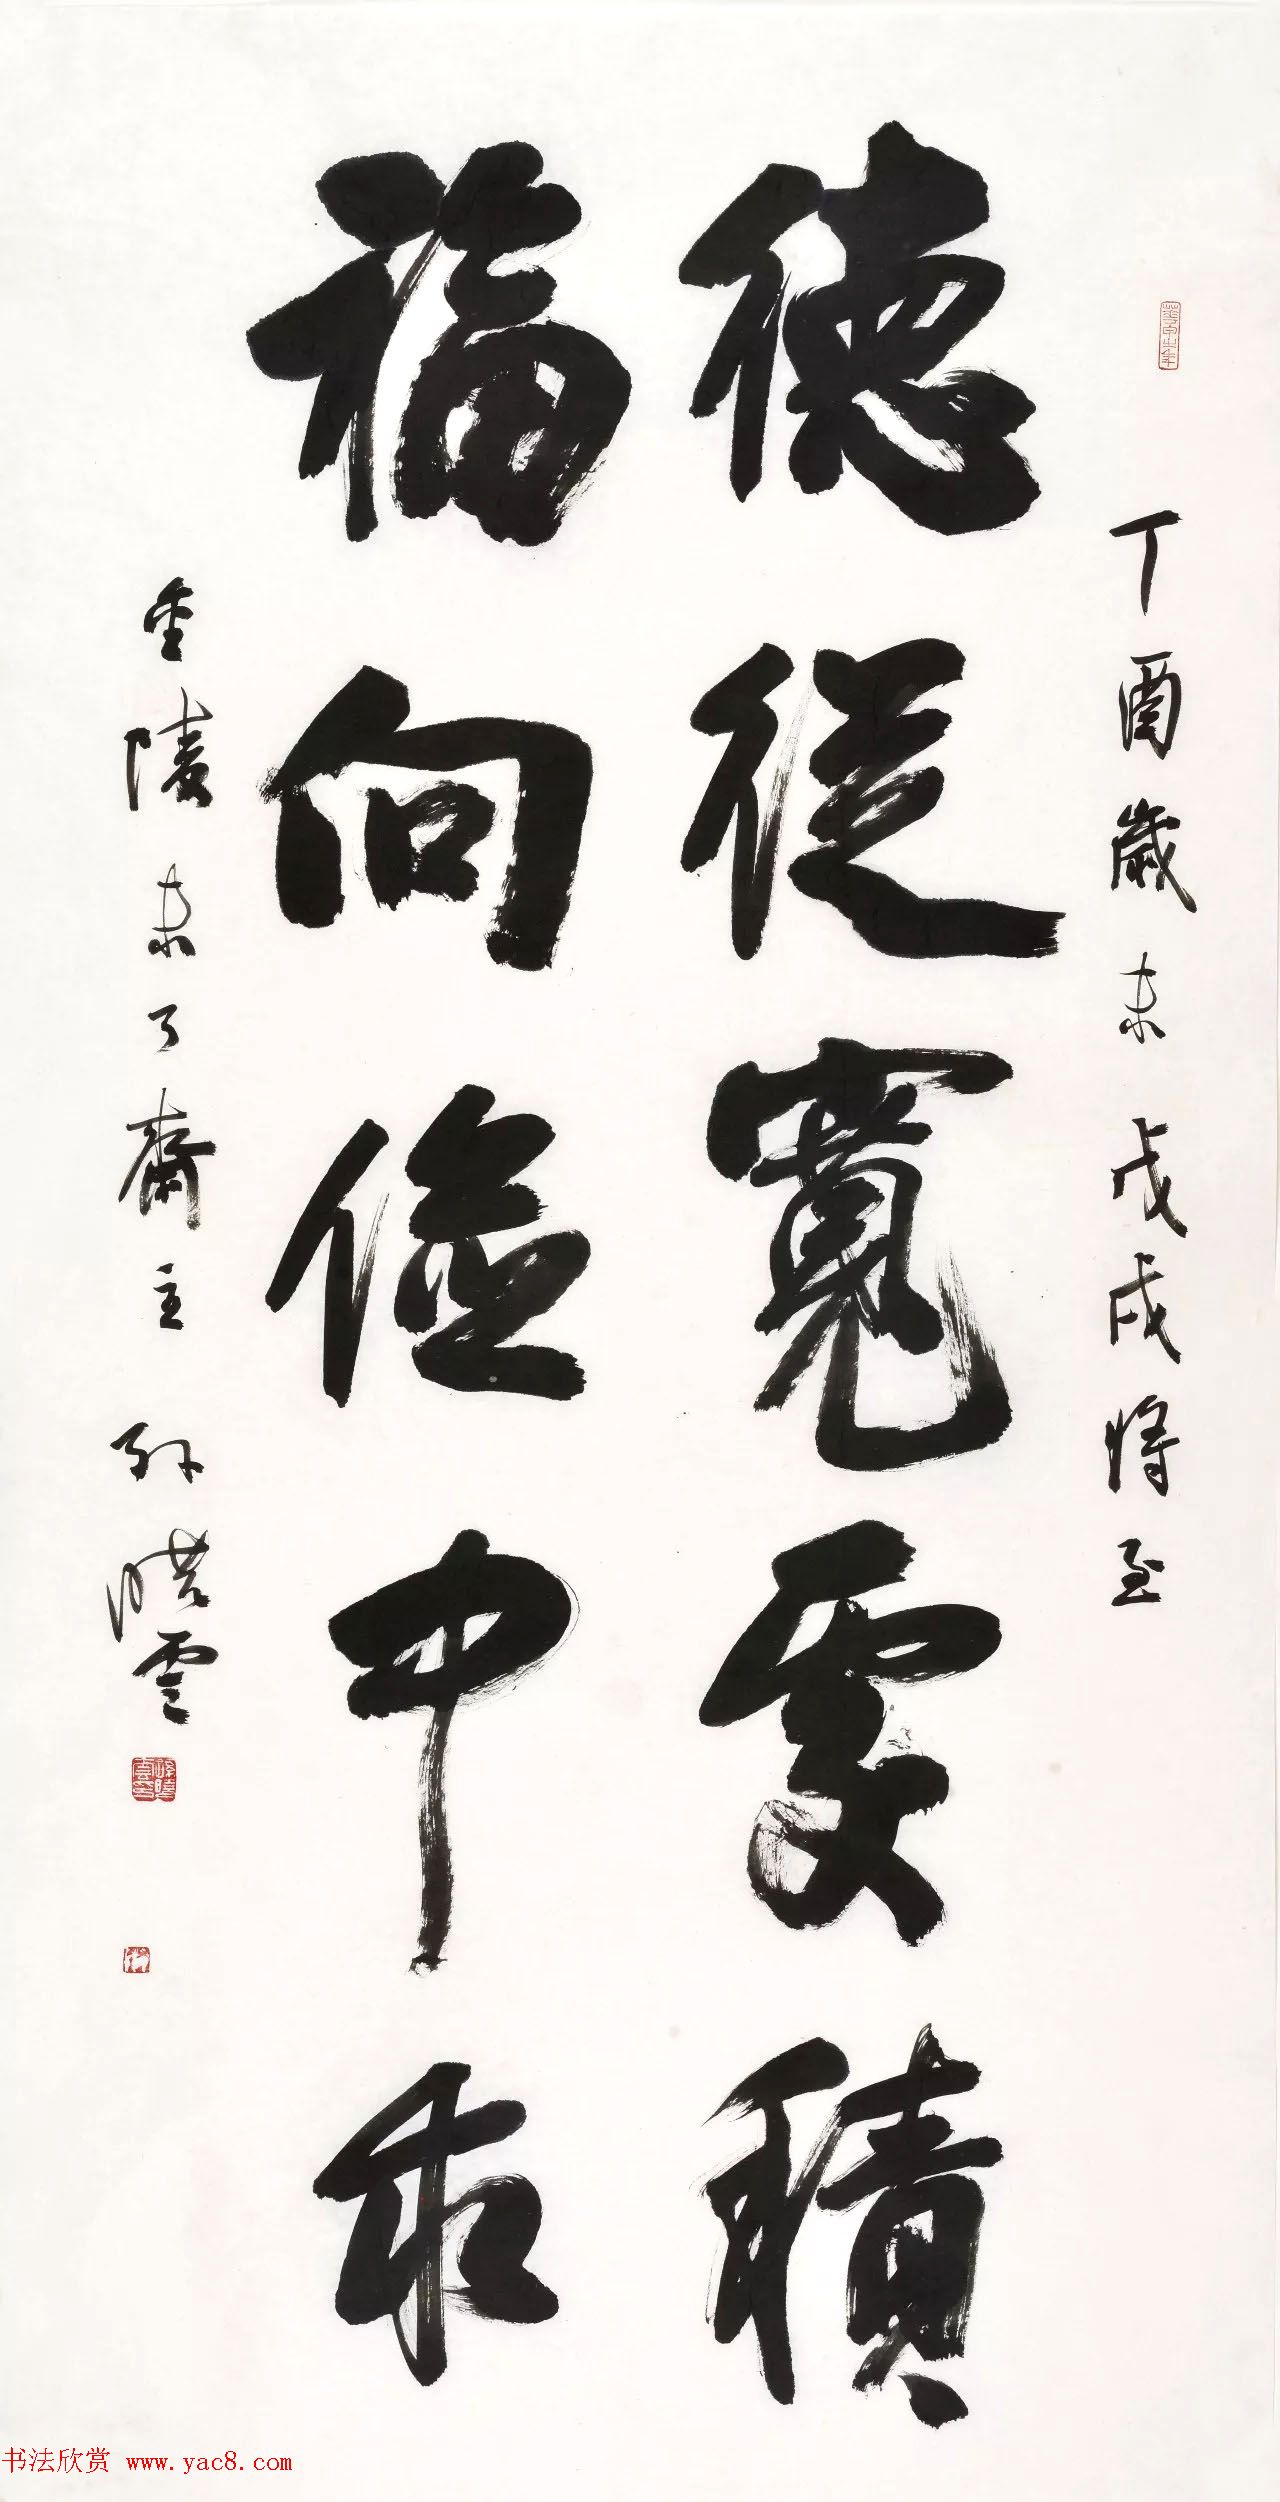 丁酉歲末戊戌將至
德從寬處積
福向儉中求
金陵未了齋主孫曉雲
书法欣赏 www.yac8.com